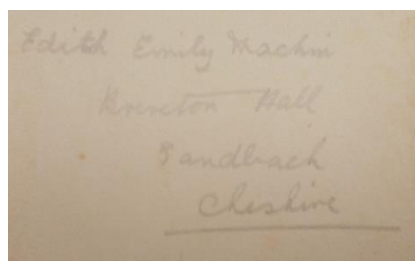 Edith Emily Machin
Brereton Hall
Sandbach
Cheshire